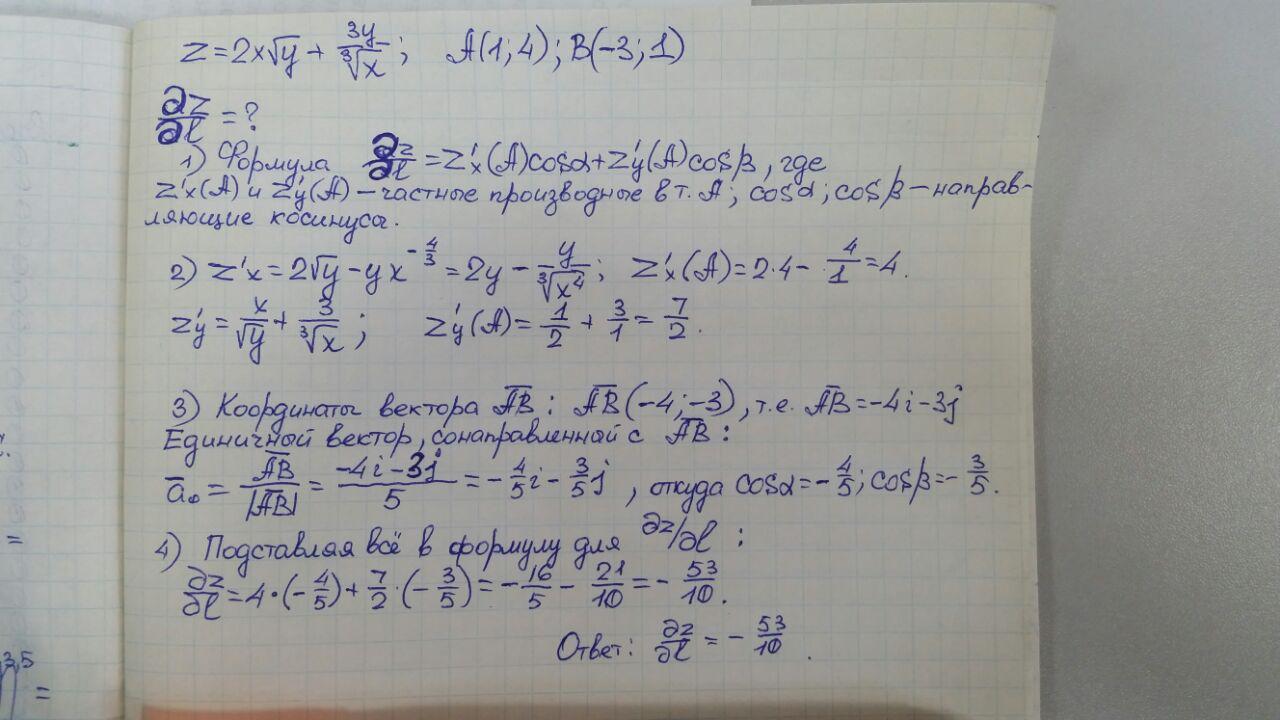 z=2x√y + 3y/∛x; A(1;4); B(-3;1)
∂z/∂l = ?
1) Формула ∂z/∂l = z'x(A)cosα+z'y(A)cosβ, где
z'x(A) и z'y(A) – частные производные в т. A; cosα; cosβ – направ-
ляющие косинусы.
2) z'x = 2√y - yx^(-4/3) = 2y - y/∛x⁴; z'x(A) = 2·4 - 4/1 = 4.
z'y = x/√y + 3/∛x; z'y(A) = 1/2 + 3/1 = 7/2.
3) Координаты вектора AB: AB(-4;-3), т.е. AB=-4i-3j
Единичный вектор, сонаправленной с AB:
a₀ = AB/|AB| = (-4i-3j)/5 = -4/5i - 3/5j, откуда cosα=-4/5; cosβ=-3/5.
4) Подставляя всё в формулу для ∂z/∂l:
∂z/∂l = 4·(-4/5)+7/2·(-3/5) = -16/5 - 21/10 = -53/10.
Ответ: ∂z/∂l = -53/10.
3,5
=
=